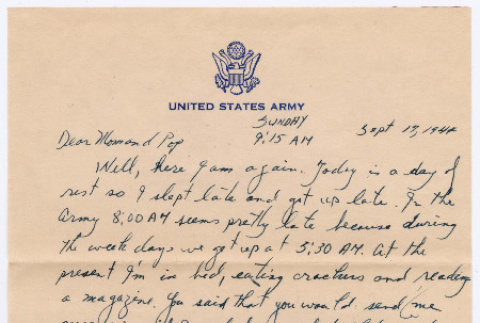 UNITED STATES ARMY
SUNDAY
9:15 AM
Sept 17, 1944
Dear Mom and Pop
Well, here I am again. Today is a day of
rest so I slept late and got up late. In the
Army 8:00 AM seems pretty late because during
the week days we get up at 5:30 AM. At the
present I'm in bed, eating crackers and reading
a magazene. You said that you would send me